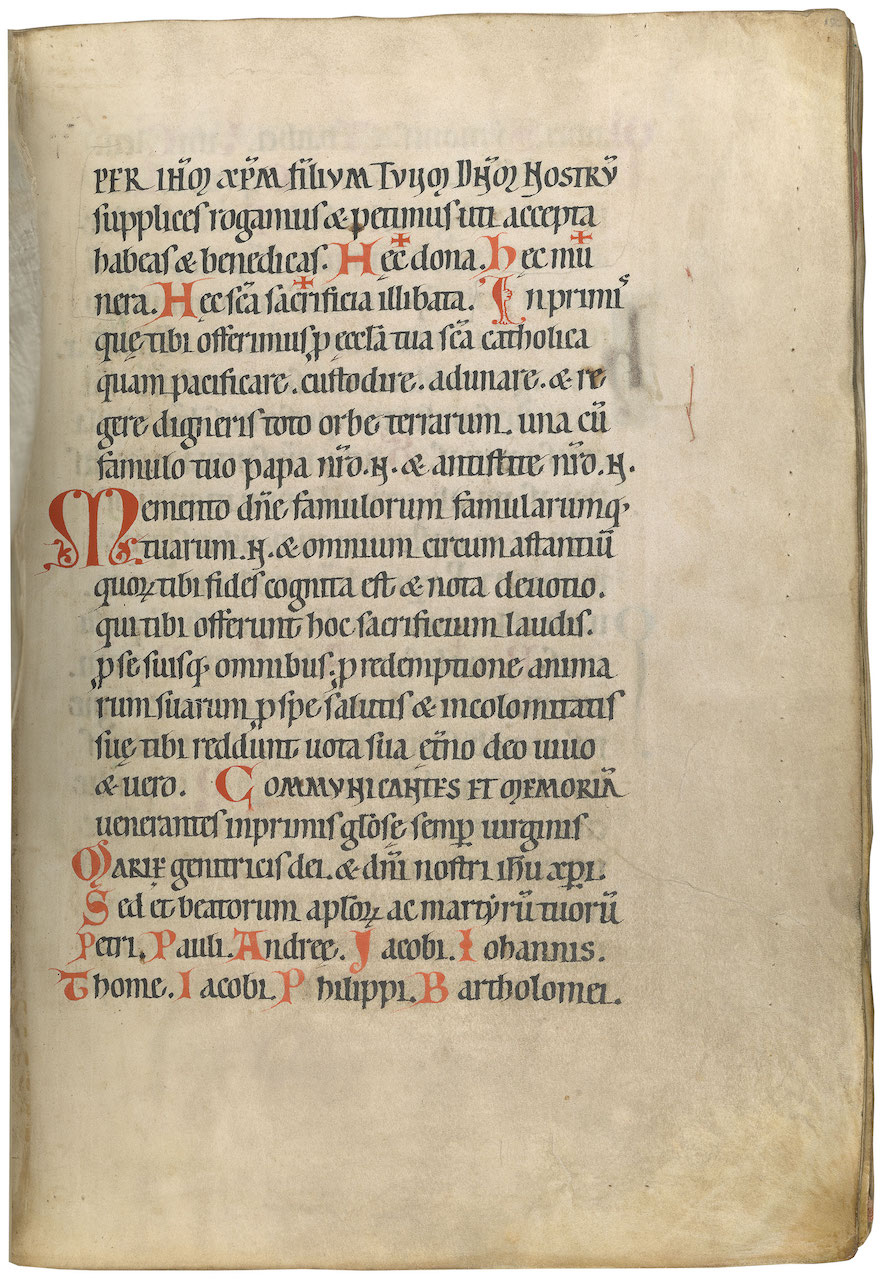 PER IHM XPM FILIVM TVVM DNM NOSTRV̄
supplices rogamus & petimus uti accepta
habeas & benedicas. Hęc ✝ dona. Hęc mu ✝
nera. Hęc sc̄a sacrificia ✝ illibata. Inprimis
quę tibi offerimus ꝑ eccl̄a tua sc̄a catholica
quam pacificare. custodire. adunare. & re
gere digneris toto orbe terrarum. una cū
famulo tuo papa nr̄o .N. & antistite nr̄o .N.
Memento dn̄e famulorum famularumq;
tuarum .N. & omnium circum astantiū
quoꝝ tibi fides cognita est & nota deuotio.
qui tibi offerunt hoc sacrificium laudis.
ꝓ se suisq; omnibus. ꝓ redemptione anima
rum suarum ꝓ spe salutis & incolomitatis
suę tibi reddunt uota sua et̄no deo uiuo
& uero. COMMVNICANTES ET MEMORIĀ
uenerantes inprimis gl̄osę semꝑ uirginis
MARIE genitricis dei. & dn̄i nostri ihū xp̄i.
Sed et beatorum apl̄oꝝ ac martyrū tuorū
Petri. Pauli. Andreę. Jacobi. Iohannis.
Thome. Iacobi. Philippi. Bartholomei.